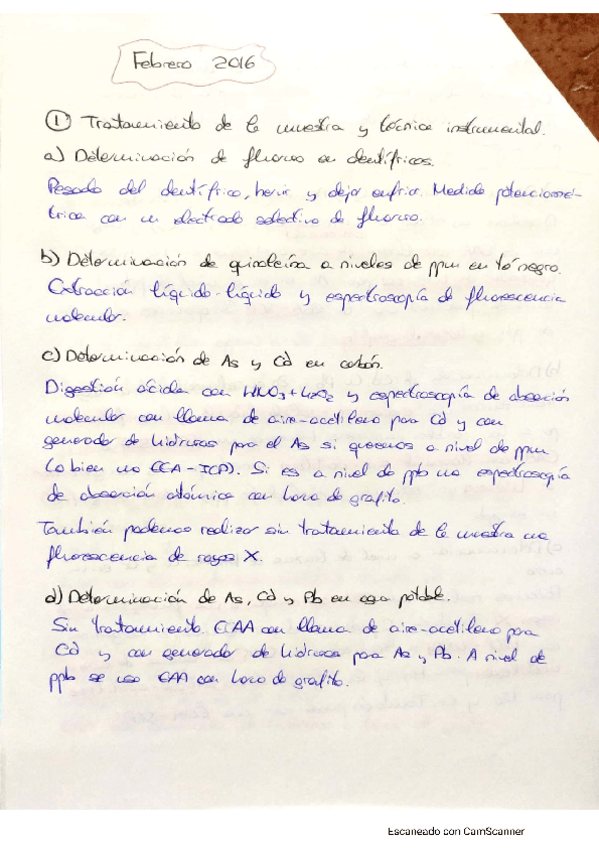 Febrero 2016
① Tratamiento de la muestra y técnica instrumental.
a) Determinación de fluoruro en dentífricos.
Pesado del dentífrico, hervir y dejar enfriar. Medida potenciomé-
trica con un electrodo selectivo de fluoruro.
b) Determinación de quinoleína a niveles de ppm en té negro.
Extracción líquido-líquido y espectroscopía de fluorescencia
molecular.
c) Determinación de As y Cd en carbón.
Digestión ácida con HNO3 + H2O2 y espectroscopía de absorción
molecular con llama de aire-acetileno para Cd y con
generador de hidruros para el As si queremos a nivel de ppm
(o bien una EEA-ICP). Si es a nivel de ppb una espectroscopía
de absorción atómica con horno de grafito.
También podemos realizar sin tratamiento de la muestra una
fluorescencia de rayos X.
d) Determinación de As, Cd y Pb en agua potable.
Sin tratamiento. EAA con llama de aire-acetileno para
Cd y con generador de hidruros para As y Pb. A nivel de
ppb se usa EAA con horno de grafito.
Escaneado con CamScanner